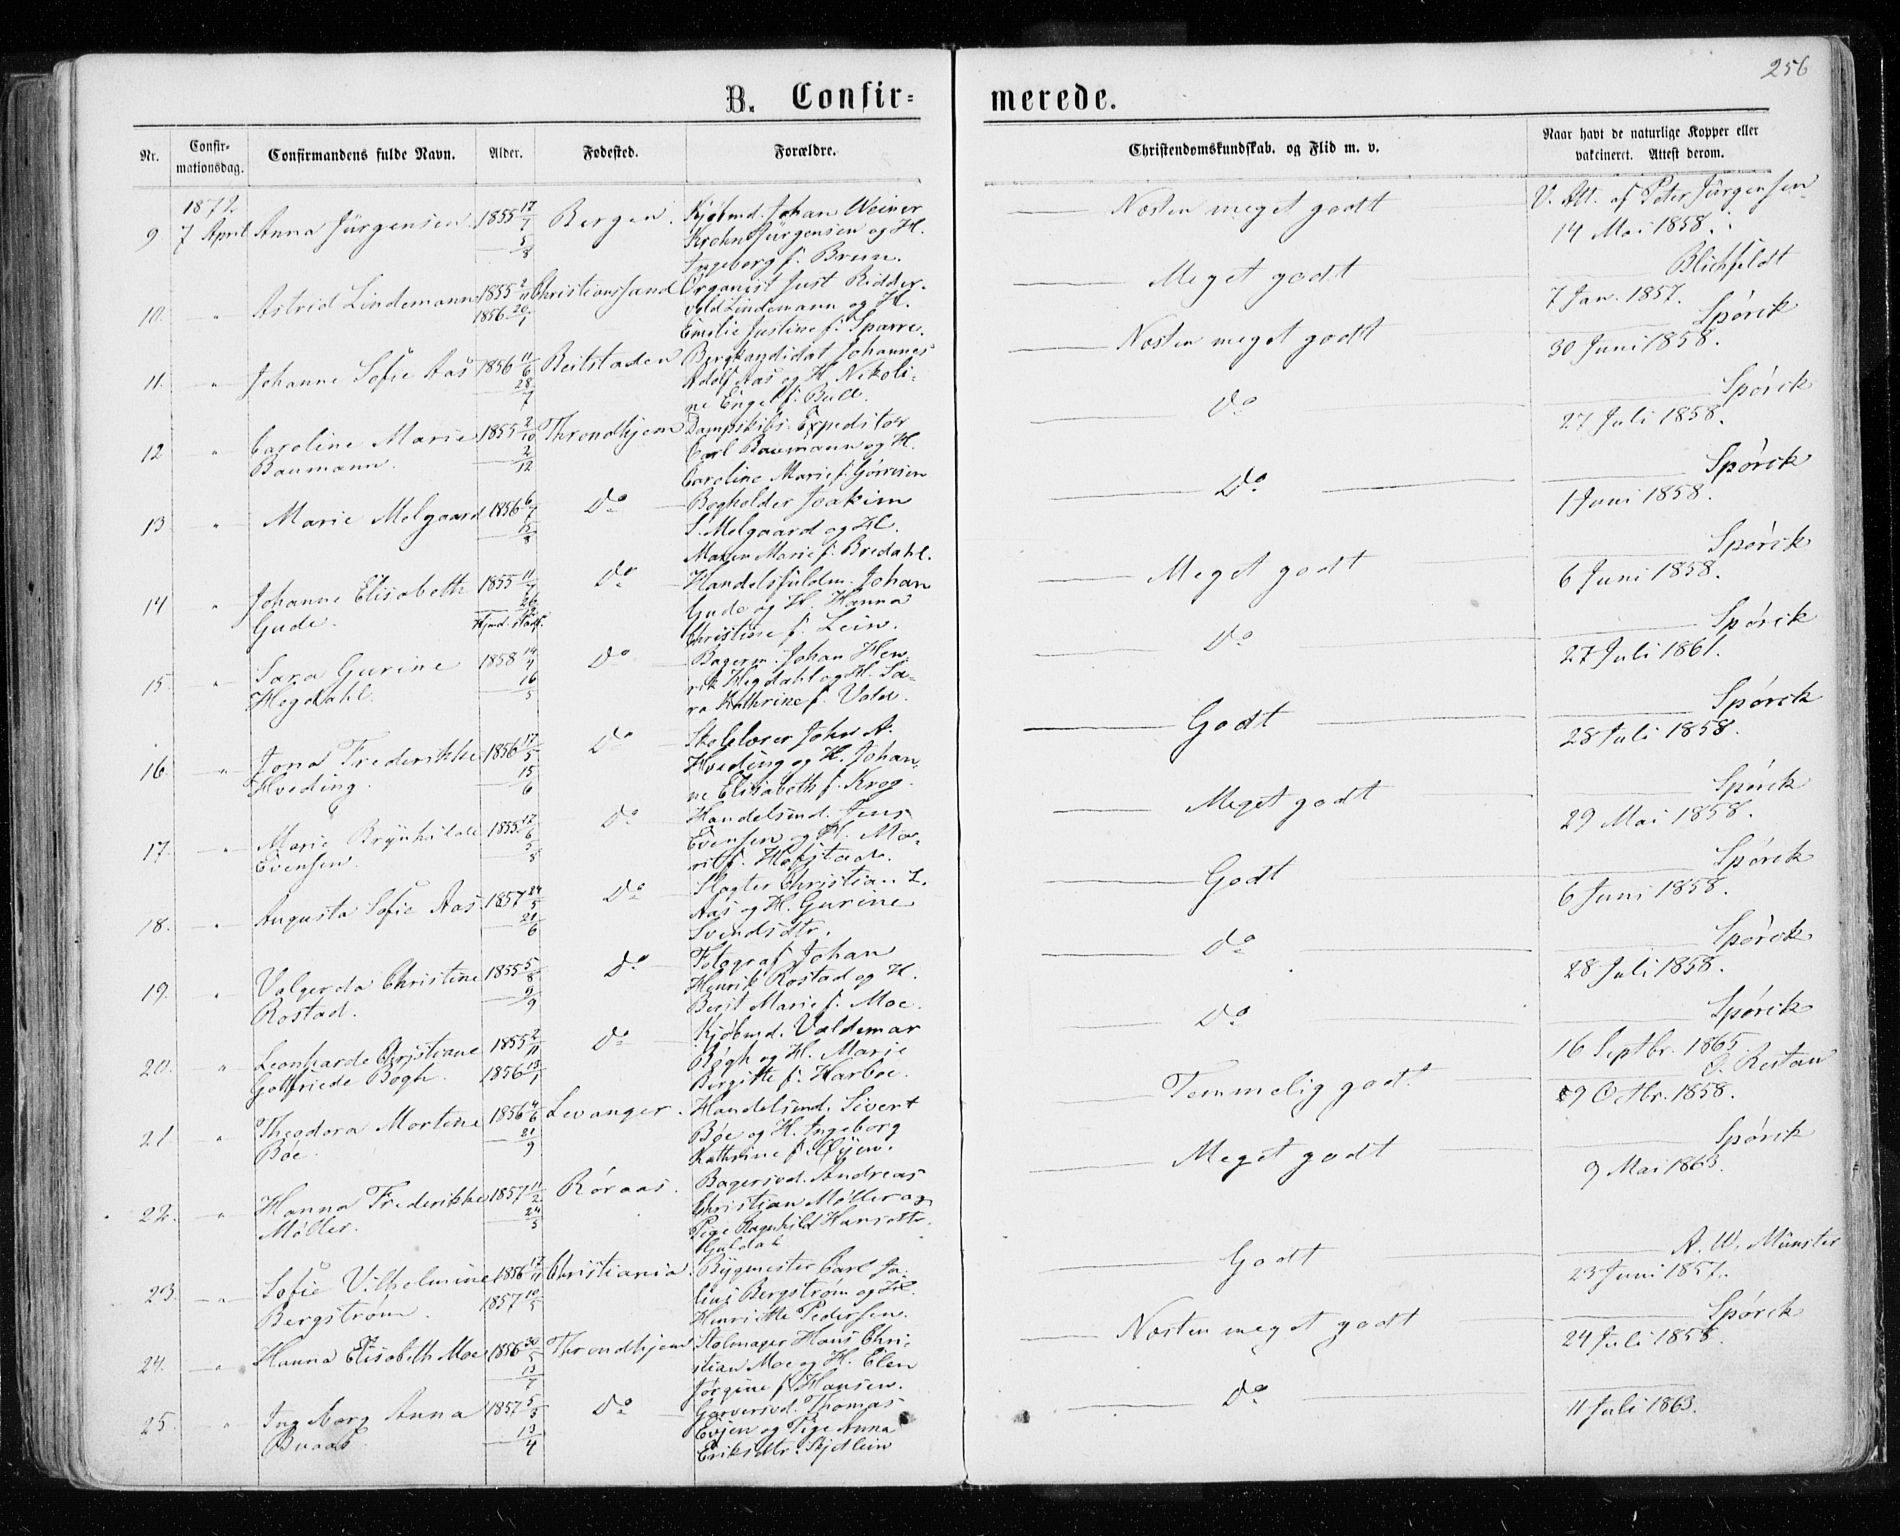 256
B. Confir=
merede.
Nr.
Confir-
mationsdag.
Confirmandens fulde Navn.
Alder.
Fødested.
Forældre.
Christendomskundskab. og Flid m. v.
Naar havt de naturlige Kopper eller
vakcineret. Attest derom.
1872.
9 7 April Anna Jürgensen 1855 17/7 5/8 Bergen. Kjøbmd. Johan Weiner
Krohn Jürgensen og H.
Ingeborg f. Bruun.
Næsten meget godt
V. Att. af Peter Jürgensen
14 Mai 1858.
10. " Astrid Lindemann 1855 2/11 1856 20/1 Christianssand Organist Just Ridder-
vold Lindemann og H.
Emilie Justine f. Sparre.
Meget godt
Blichfeldt
7 Jan. 1857.
11. " Johanne Sofie Aas 1856 11/6 28/7 Beitstaden Bergkandidat Johannes
Adolf Aas og H. Nikoli-
ne Engel f. Bull.
Næsten meget godt
Spørck
30 Juni 1858.
12 " Caroline Marie 1855 2/10 2/12 Throndhjem Dampskibs. Expeditør
Baumann. Carl Baumann og H.
Caroline Marie f. Gørrisen
Do
Spørck
27 Juli 1858.
13 " Marie Melgaard 1856 6/7 15/8 Do Bogholder Joakim
S. Melgaard og H.
Maren Marie f. Bredahl.
Do
Spørck
1 Juni 1858.
14 " Johanne Elisabeth 1855 11/7 26/12 Do Handelsfuldm. Johan
Gude. Hjmd. Gude og H. Hanna
Christine f. Lein.
Meget godt
Spørck
6 Juni 1858.
15 " Sara Gurine 1858 14/4 16/5 Do Bagerm. Johan Hen-
Hegdahl. rik Hegdahl og H. Sa-
ra Kathrine f. Vold.
Do
Spørck
27 Juli 1861.
16 " Jona Frederikke 1856 17/5 15/6 Do Skolelærer John A.
Hveding. Hveding og H. Johan-
ne Elisabeth f. Krog.
Godt
Spørck
28 Juli 1858.
17. " Marie Brynhilde 1855 12/6 5/8 Do Handelsmd. Jens
Evensen. Evensen og H. Ma-
rit f. Hofstad.
Meget godt
Spørck
29 Mai 1858.
18. " Augusta Sofie Aas 1857 24/5 21/6 Do Slagter Christian L.
Aas og H. Gurine
Svendsdtr.
Godt
Spørck
6 Juni 1858.
19. " Valgerda Christine 1855 5/8 9/9 Do Fotograf Johan
Rostad. Henrik Rostad og H.
Berit Marie f. Moe.
Do
Spørck
28 Juli 1858.
20. " Leonharde Christiane 1855 2/11 1856 13/1 Do Kjøbmd. Valdemar
Gotfriede Bøgh. Bøgh og H. Marie
Birgitte f. Harboe.
Do
Spørck
16 Septbr. 1865
21 " Theodora Mortine 1856 4/6 21/9 Levanger. Handelsmd. Sivert
Bøe. Bøe og H. Ingeborg
Kathrine f. Øyen.
Temmelig godt
O. Restan
9 Oktbr. 1858.
22. " Hanna Frederikke 1857 11/2 24/5 Røraas. Bagersvd. Andreas
Møller. Christian Møller og
Pige Ragnhild Hansdtr.
Guldal
Meget godt
Spørck
9 Mai 1863.
23. " Sofie Vilhelmine 1856 17/11 1857 10/5 Christiania. Bygmester Carl Ju-
Bergstrøm. lius Bergstrøm og H.
Henriette Pedersen.
Godt
A. W. Münster
23 Juni 1857.
24. " Hanna Elisabeth Moe 1856 30/5 13/7 Throndhjem Stolmager Hans Chri-
stian Moe og H. Elen
Jørgine f. Hansen.
Næsten meget godt
Spørck
24 Juli 1858.
25. " Ingeborg Anna 1857 5/3 13/4 Do Garversvd. Thomas
Buaas. Evjen og Pige Anna
Eriksdtr. Skjetlein
Do
11 Juli 1863.